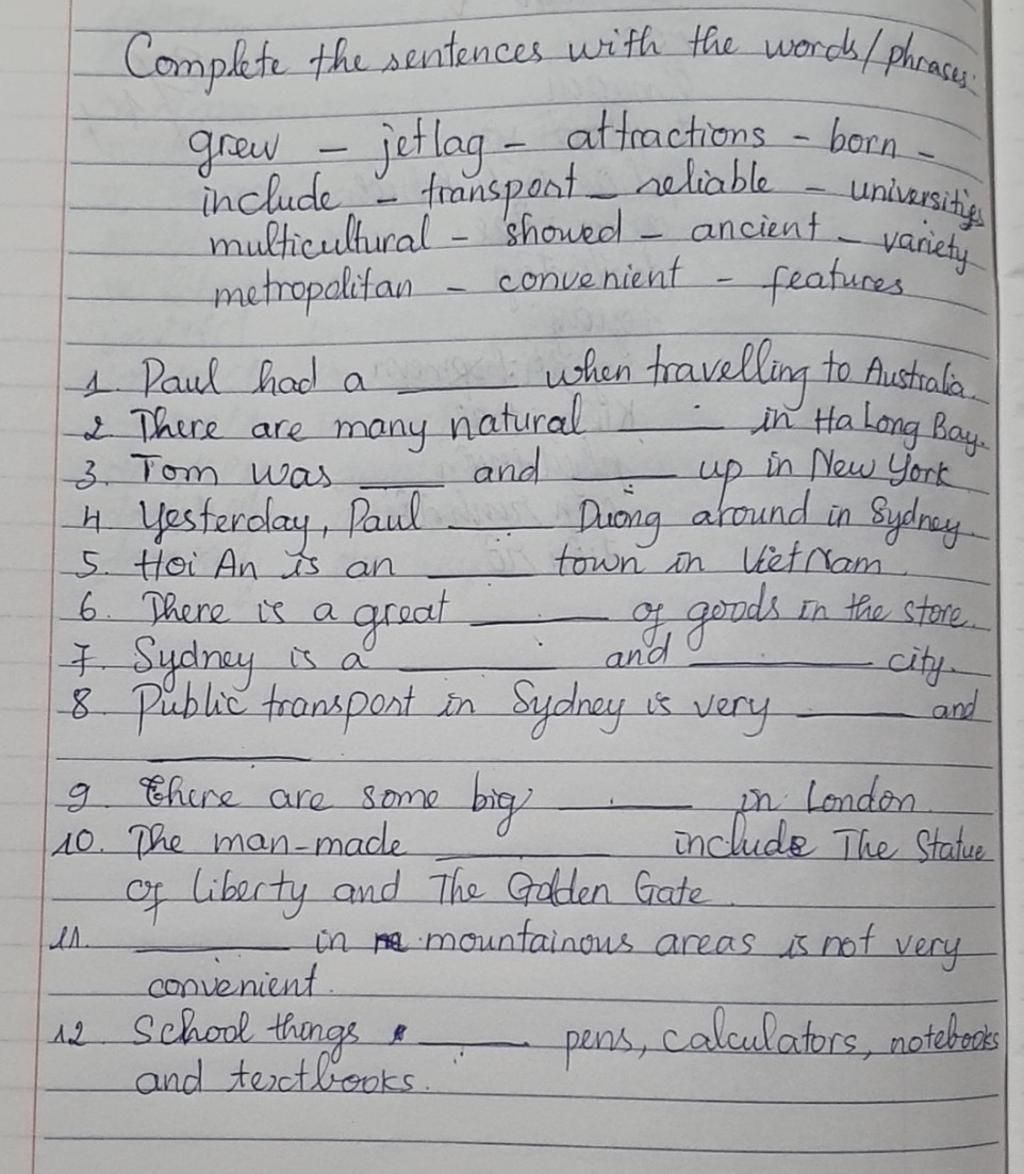 Complete the sentences with the words/phrases:
grew - jetlag - attractions - born -
include - transport - reliable - universities
multicultural - showed - ancient - variety
metropolitan - convenient - features
1. Paul had a ______ when travelling to Australia.
2. There are many natural ______ in Ha Long Bay.
3. Tom was ____ and _____ up in New York
4. Yesterday, Paul ____ Duong around in Sydney.
5. Hoi An is an _____ town in Viet Nam.
6. There is a great ______ of goods in the store.
7. Sydney is a _______ and ________ city.
8. Public transport in Sydney is very _____ and
_______
9. there are some big ______ in London.
10. The man-made ________ include The Statue
of liberty and The Golden Gate
11. _______ in mountainous areas is not very
convenient.
12. School things _____ pens, calculators, notebooks
and textbooks.